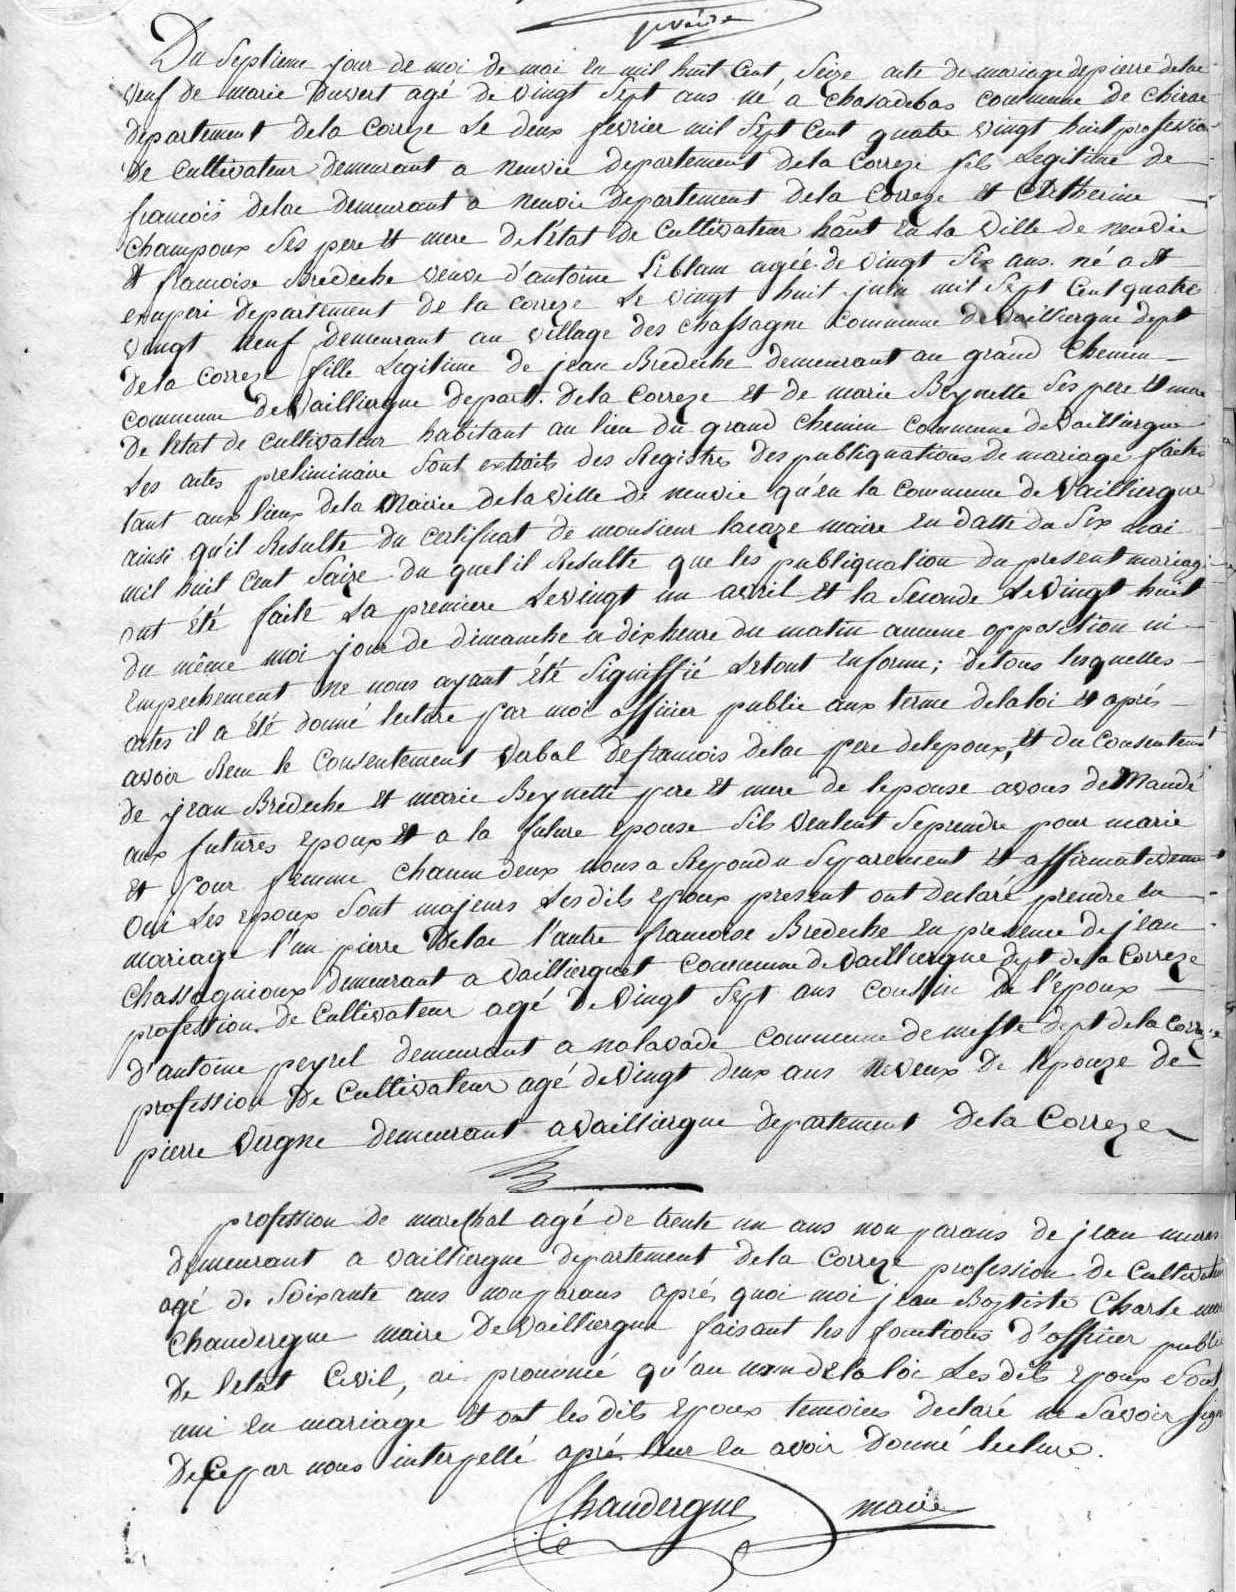 Du Septieme jour de moi de mai en mil huit Cent Seize acte de mariage de pierre delac
veuf de marie Duvert agé de vingt Sept ans né a Chasadebas commune de Chirac
departement dela Correze Le deux fevrier mil Sept Cent quatre vingt huit profession
De cultivateur demeurant a neuvic departement dela Correze fils Legitime de
francois delac demeurant a neuvic departement dela Correze et Catherine
Champoux Ses pere et mere De l'état de Cultivateur habt en la ville de neuvic
et francoise Bredeche veuve d'antoine Leblanc agée de vingt Six ans né a St
exuperi departement de la correze Le vingt huit juin mil Sept Cent quatre
vingt neuf demeurant au village des chassagne commune de Vailliergue dept
dela Correze fille Legitime de jean Bredeche demeurant au grand Chemin
commune de Vailliergue depart. dela Correze et de marie Beynette Ses pere et mere
De letat de cultivateur habitant au lieu du grand chemin commune de Vailliergue
Les actes preliminaire Sont extraits des Registres des publiquations de mariage faites
tant aux lieux dela Mairie dela ville de neuvic qu'en la commune de Vailliergue
ainsi qu'il Resulte du certificat de monsieur lacaze maire en datte du Six mai
mil huit Cent Saize du quel il Resulte que les publiquation du present mariage
ont été faite La premiere Le vingt un avril et la Seconde Le Vingt huit
du même moi jour de dimanche a dix heure du matin aucune opposition ni
Empechement ne nous ayant été Signiffié Le tout en forme; de tous lesquelles
actes il a été donné lecture par moi officier public aux terme dela loi et aprés
avoir Recu le Consentement Verbal de francois delac pere de lepoux, et du Consentemt
de jean Bredeche et marie Beynette pere et mere de lepouse avons deMandé
aux futures Epoux et a la future epouse Sils Veulent Seprendre pour marie
Et pour femme chacun deux nous a Repondu Separement et affirmativement
oui Les epoux Sont majeurs Lesdits epoux present ont declaré prendre en
mariage l'un pierre Delac l'autre francoise Bredeche en presence de jean
Chassagnioux demeurant a Vailliergue commune de Vailliergue dept de la Correze
profession de Cultivateur agé de Vingt Sept ans cousin de l'epoux
d'antoine peyrel demeurant a nalavade commune de meste dept dela Correze
profession de Cultivateur agé de vingt deux ans neveux de lepouze de
pierre Vergne demeurant a Vailliergue departement dela Correze
profession de marechal agé de trente un ans non parans de jean
demeurant a Vailliergue departement dela Correze profession de Cultivateur
agé de Soixante ans non parans aprés quoi moi jean Baptiste Charle
Chaudergue maire de Vailliergue faisant les fonctions d'officier public
De letat Civil, ai prononcé qu'au nom dela loi Lesdits epoux Sont
uni en mariage et ont lesdits epoux temoins declaré ne Savoir Signé
De Ce par nous interpellé aprés leur en avoir donné lecture.
Chaudergue maire